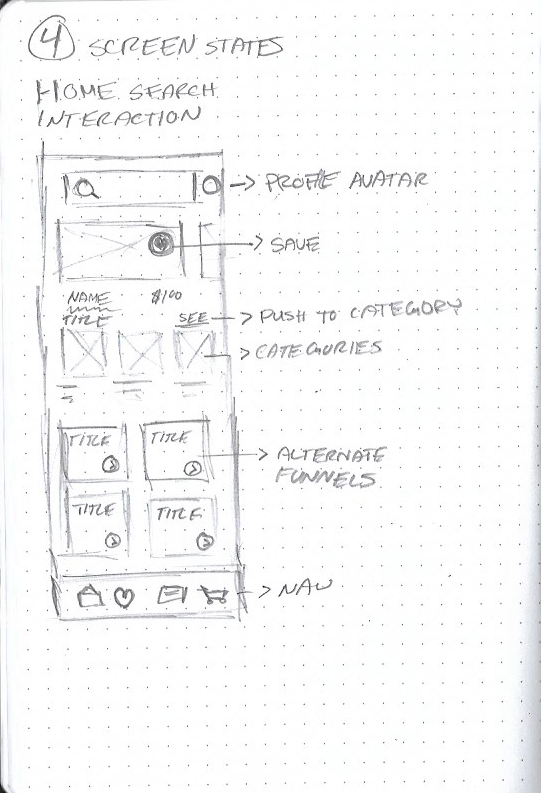 4 SCREEN STATES
HOME SEARCH
INTERACTION
PROFILE AVATAR
SAVE
NAME $100
TITLE SEE
PUSH TO CATEGORY
CATEGORIES
TITLE TITLE
ALTERNATE
FUNNELS
TITLE TITLE
NAV